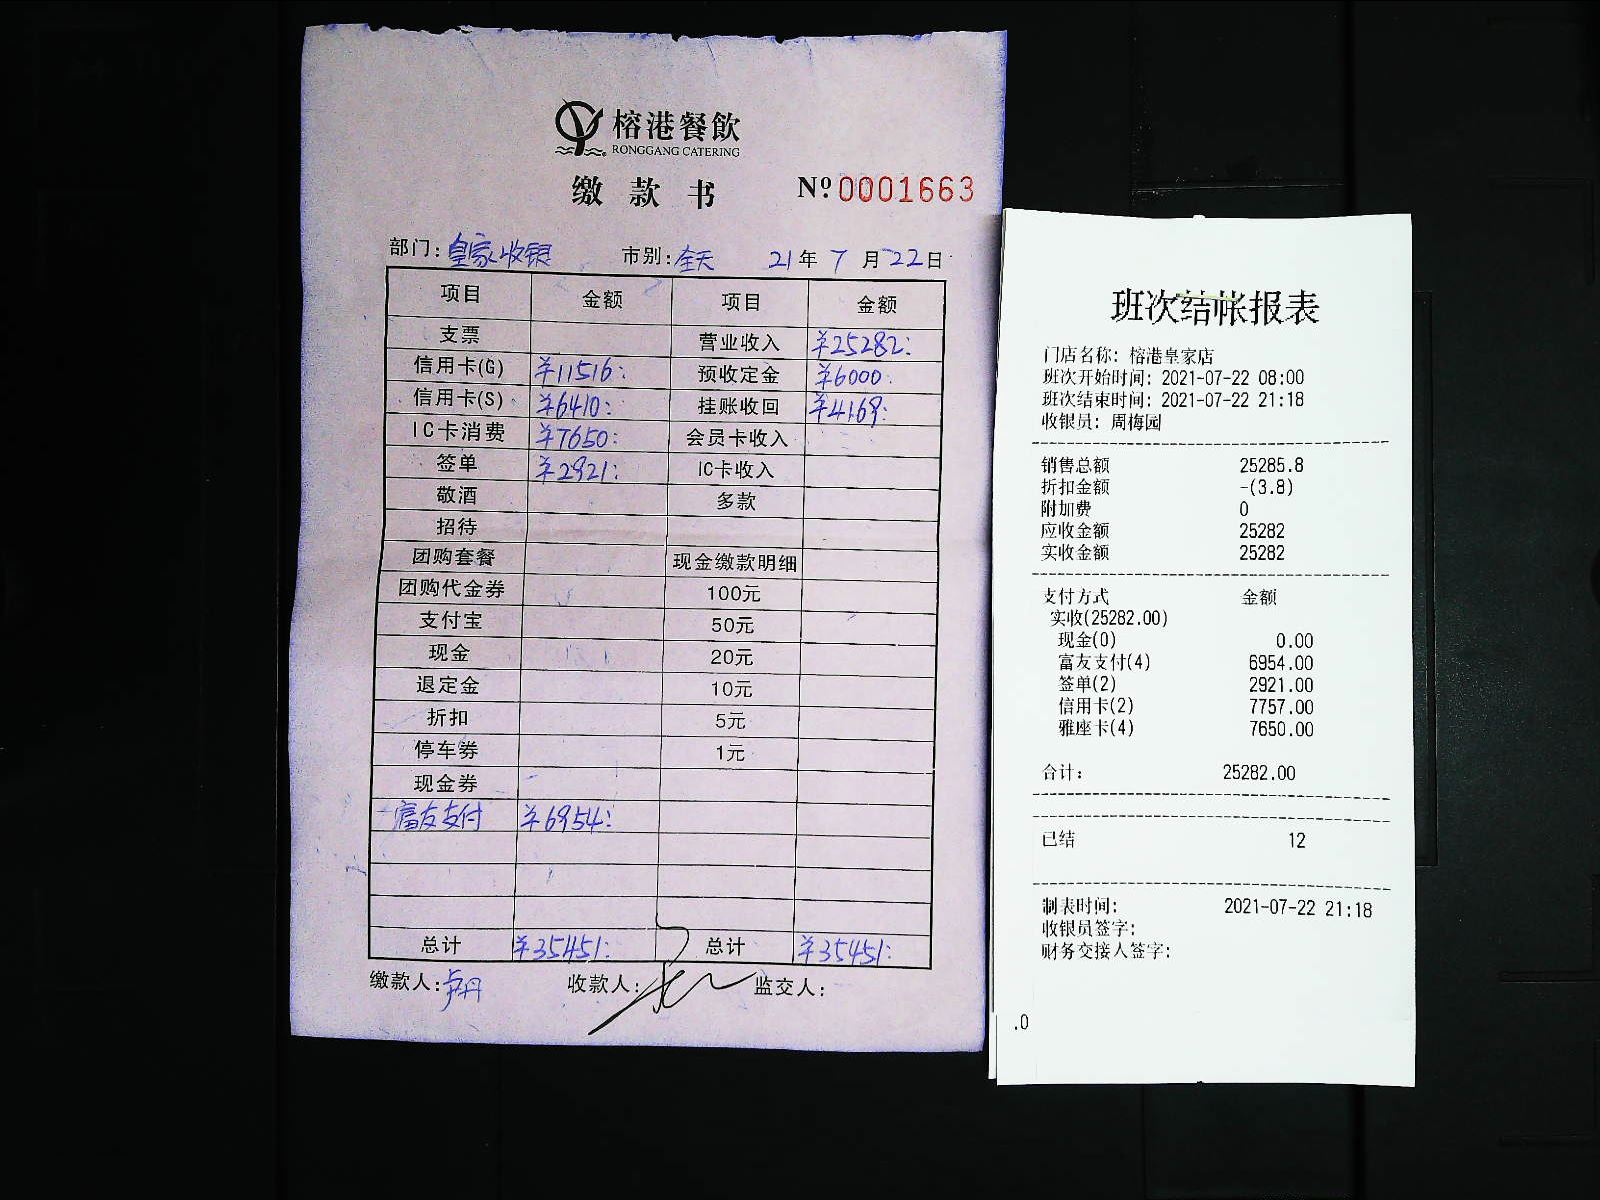 榕港餐飲
RONGGANG CATERING
缴款书 Nº0001663
部门:皇家收银 市别:全天 21年7月22日
项目 金额 项目 金额
支票 营业收入 ¥25282:
信用卡(G) ¥11516: 预收定金 ¥6000:
信用卡(S) ¥6410: 挂账收回 ¥4169:
IC卡消费 ¥7650: 会员卡收入
签单 ¥2921: IC卡收入
敬酒 多款
招待
团购套餐 现金缴款明细
团购代金券 100元
支付宝 50元
现金 20元
退定金 10元
折扣 5元
停车券 1元
现金券
富友支付 ¥6954:
总计 ¥35451: 总计 ¥35451:
缴款人:卢丹 收款人: 监交人:
班次结帐报表
门店名称: 榕港皇家店
班次开始时间: 2021-07-22 08:00
班次结束时间: 2021-07-22 21:18
收银员: 周梅园
销售总额 25285.8
折扣金额 -(3.8)
附加费 0
应收金额 25282
实收金额 25282
支付方式 金额
实收(25282.00)
现金(0) 0.00
富友支付(4) 6954.00
签单(2) 2921.00
信用卡(2) 7757.00
雅座卡(4) 7650.00
合计: 25282.00
已结 12
制表时间: 2021-07-22 21:18
收银员签字:
财务交接人签字:
.0